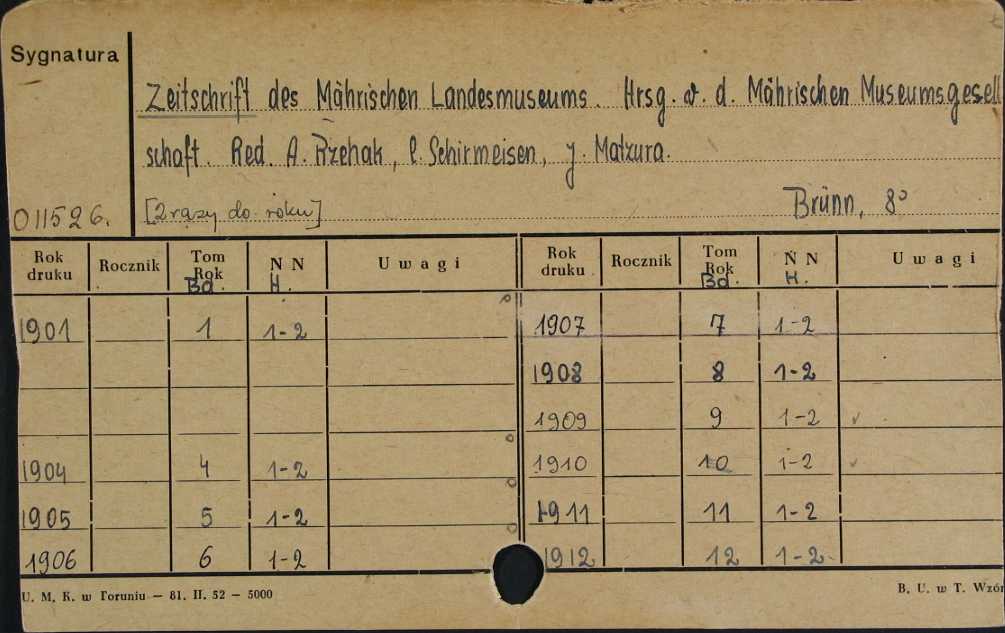 Sygnatura
Zeitschrift des Mährischen Landesmuseums. Hrsg. v. d. Mährischen Museumsgesell
schaft. Red. A. Rzehak, C. Schirmeisen, J. Matzura.
011526. [2 razy do roku] Brünn, 8°
Rok druku Rocznik Tom Rok Bd. N N H. Uwagi Rok druku Rocznik Tom Rok Bd. N N H. Uwagi
1901 1 1-2 1907 7 1-2
1908 8 1-2
1909 9 1-2 ✓
1904 4 1-2 1910 10 1-2 ✓
1905 5 1-2 1911 11 1-2
1906 6 1-2 1912 12 1-2
U. M. K. w Toruniu — 81. II. 52 — 5000 B. U. w T. Wzór